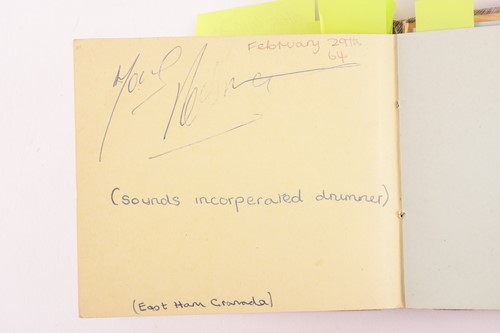 February 29th
64
Tony Newman
(sounds incorperated drummer)
(East Ham Granada)